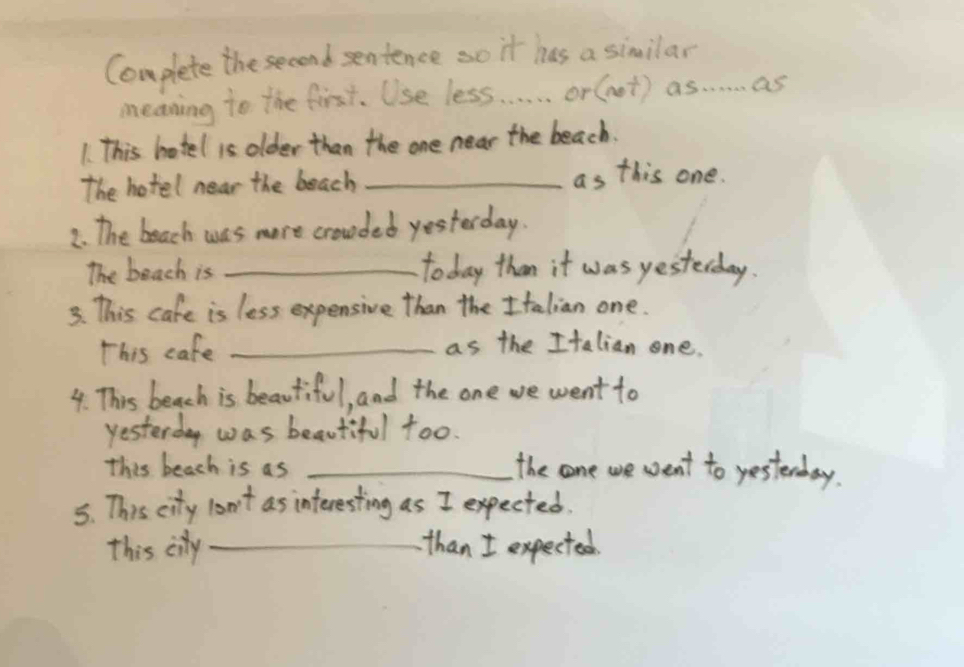 Complete the second sentence so it has a similar
meaning to the first. Use less...... or (not) as......as
1. This hotel is older than the one near the beach.
The hotel near the beach ____________ as this one.
2. The beach was more crowded yesterday.
The beach is ____________ today than it was yesterday.
3. This cafe is less expensive than the Italian one.
This cafe ____________ as the Italian one.
4. This beach is beautiful, and the one we went to
yesterday was beautiful too.
This beach is as ____________ the one we went to yesterday.
5. This city isn't as interesting as I expected.
This city ____________ than I expected.